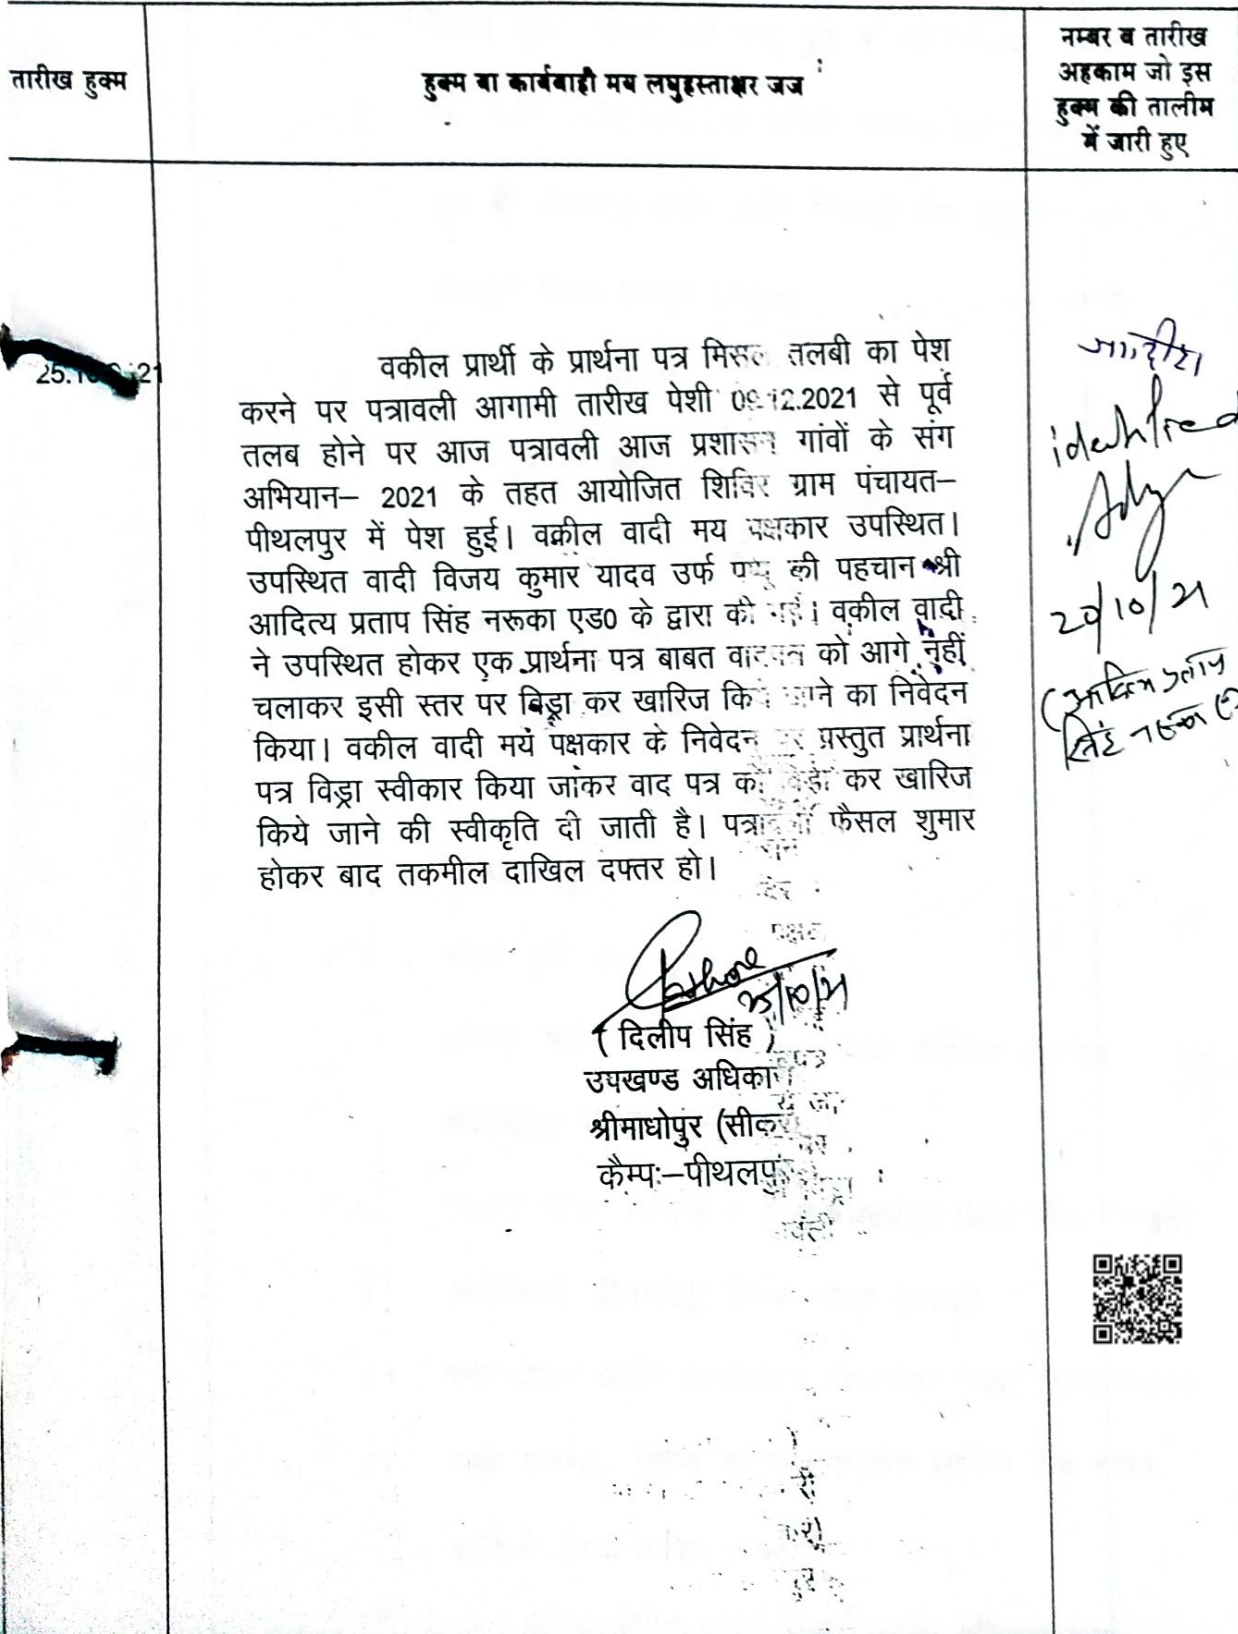 तारीख हुक्म
हुक्म या कार्यवाही मय लघुहस्ताक्षर जज
नम्बर व तारीख
अहकाम जो इस
हुक्म की तालीम
में जारी हुए
वकील प्रार्थी के प्रार्थना पत्र मिसल तलबी का पेश
करने पर पत्रावली आगामी तारीख पेशी 09.12.2021 से पूर्व
तलब होने पर आज पत्रावली आज प्रशासन गांवों के संग
अभियान– 2021 के तहत आयोजित शिविर ग्राम पंचायत–
पीथलपुर में पेश हुई। वकील वादी मय पक्षकार उपस्थित।
उपस्थित वादी विजय कुमार यादव उर्फ पप्पू की पहचान श्री
आदित्य प्रताप सिंह नरूका एड0 के द्वारा की गई। वकील वादी
ने उपस्थित होकर एक प्रार्थना पत्र बाबत वादपत्र को आगे नहीं
चलाकर इसी स्तर पर विड्रा कर खारिज किये जाने का निवेदन
किया। वकील वादी मय पक्षकार के निवेदन पर प्रस्तुत प्रार्थना
पत्र विड्रा स्वीकार किया जांकर वाद पत्र को विड्रो कर खारिज
किये जाने की स्वीकृति दी जाती है। पत्रावली फैसल शुमार
होकर बाद तकमील दाखिल दफ्तर हो।
25/10/21
( दिलीप सिंह )
उपखण्ड अधिकारी
श्रीमाधोपुर (सीकर)
कैम्पः–पीथलपुर
identified
20/10/21
(आदित्य प्रताप
सिंह नरूका